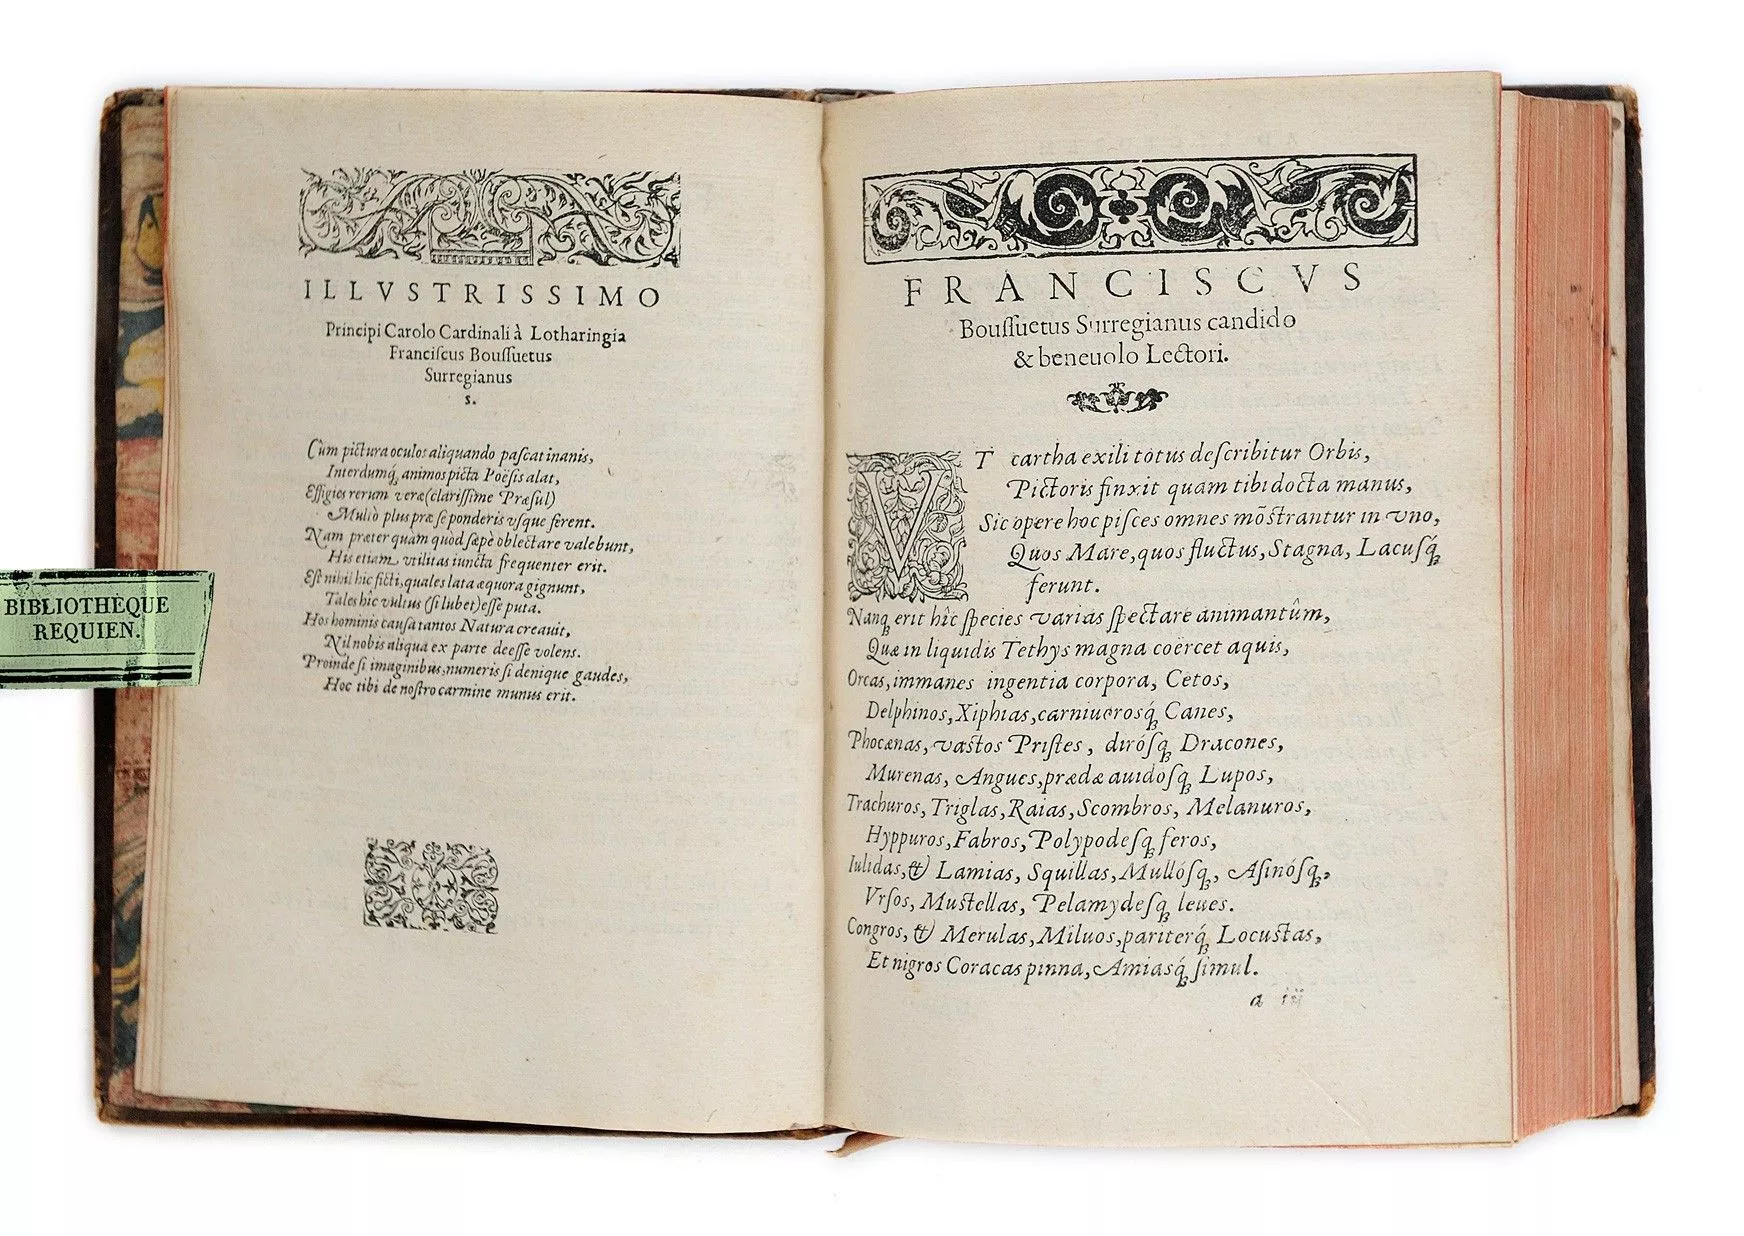 BIBLIOTHÈQUE
REQUIEN.
ILLVSTRISSIMO
Principi Carolo Cardinali à Lotharingia
Franciſcus Bouſſuetus
Surregianus
s.
Cùm pictura oculos aliquando paſcat inanis,
Interdumq́ animos picta Poësis alat,
Effigies rerum veræ (clariſſime Præſul)
Multò plus præ ſe ponderis vſque ferent.
Nam præter quàm quod ſæpè oblectare valebunt,
His etiam vtilitas iuncta frequenter erit.
Eſt nihil hîc ficti, quales lata æquora gignunt,
Tales hîc vultus (ſi lubet) eſſe puta.
Hos hominis cauſa tantos Natura creauit,
Nil nobis aliqua ex parte deeſſe volens.
Proinde ſi imaginibus, numeris ſi denique gaudes,
Hoc tibi de noſtro carmine munus erit.
FRANCISCVS
Bouſſuetus Surregianus candido
& beneuolo Lectori.
VT cartha exili totus deſcribitur Orbis,
Pictoris finxit quam tibi docta manus,
Sic opere hoc piſces omnes mõſtrantur in vno,
Quos Mare, quos fluctus, Stagna, Lacuſq́
ferunt.
Nanq erit hîc ſpecies varias ſpectare animantûm,
Quæ in liquidis Tethys magna coërcet aquis,
Orcas, immanes ingentia corpora, Cetos,
Delphinos, Xiphias, carniuorosq́ Canes,
Phocænas, vaſtos Priſtes, diróſq Dracones,
Murenas, Angues, prædæ auidoſq Lupos,
Trachuros, Triglas, Raias, Scombros, Melanuros,
Hyppuros, Fabros, Polypodeſq feros,
Iulidas, & Lamias, Squillas, Mullóſq, Aſinóſq,
Vrſos, Muſtellas, Pelamydeſq leues.
Congros, & Merulas, Miluos, pariterq́ Locuſtas,
Et nigros Coracas pinna, Amiasq́ ſimul.
a iij